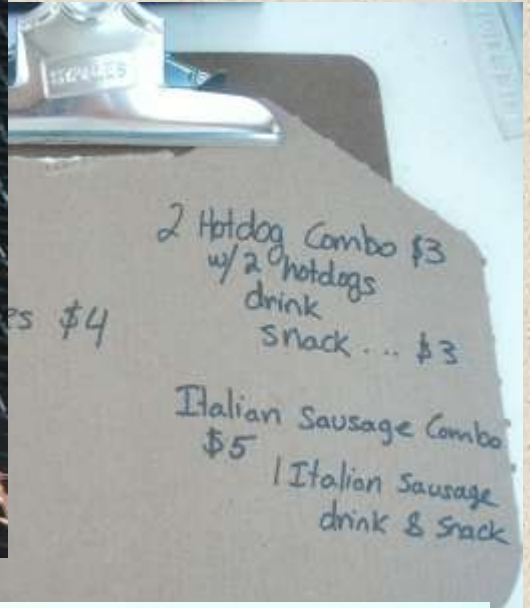 2 Hotdog Combo $3
w/ 2 hotdogs
drink
snack ... $3
es $4
Italian Sausage Combo
$5
1 Italian Sausage
drink & snack